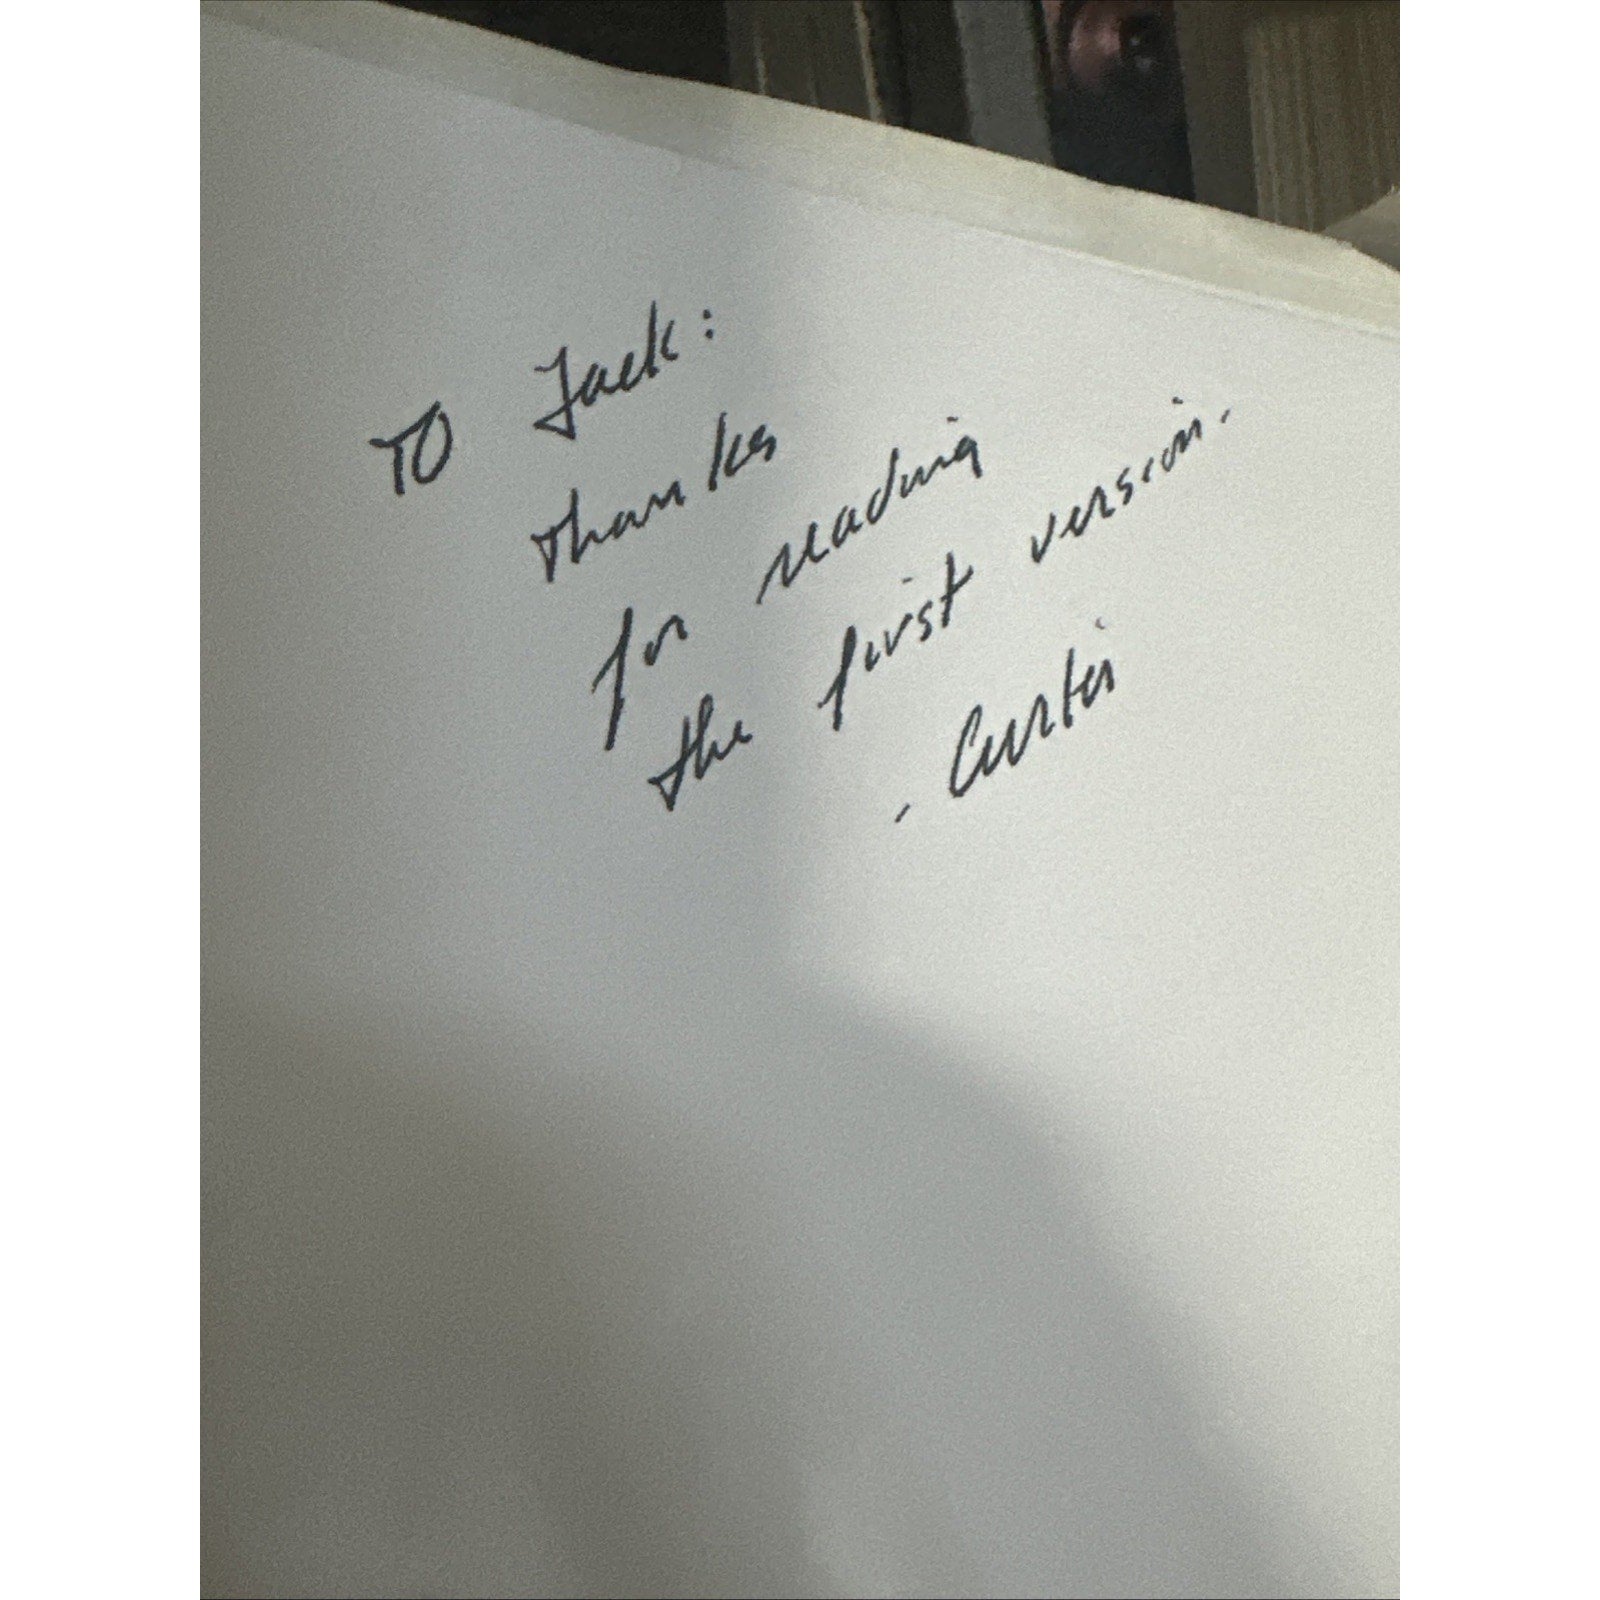 TO Jack:
thanks
for reading
the first version.
- Curtis